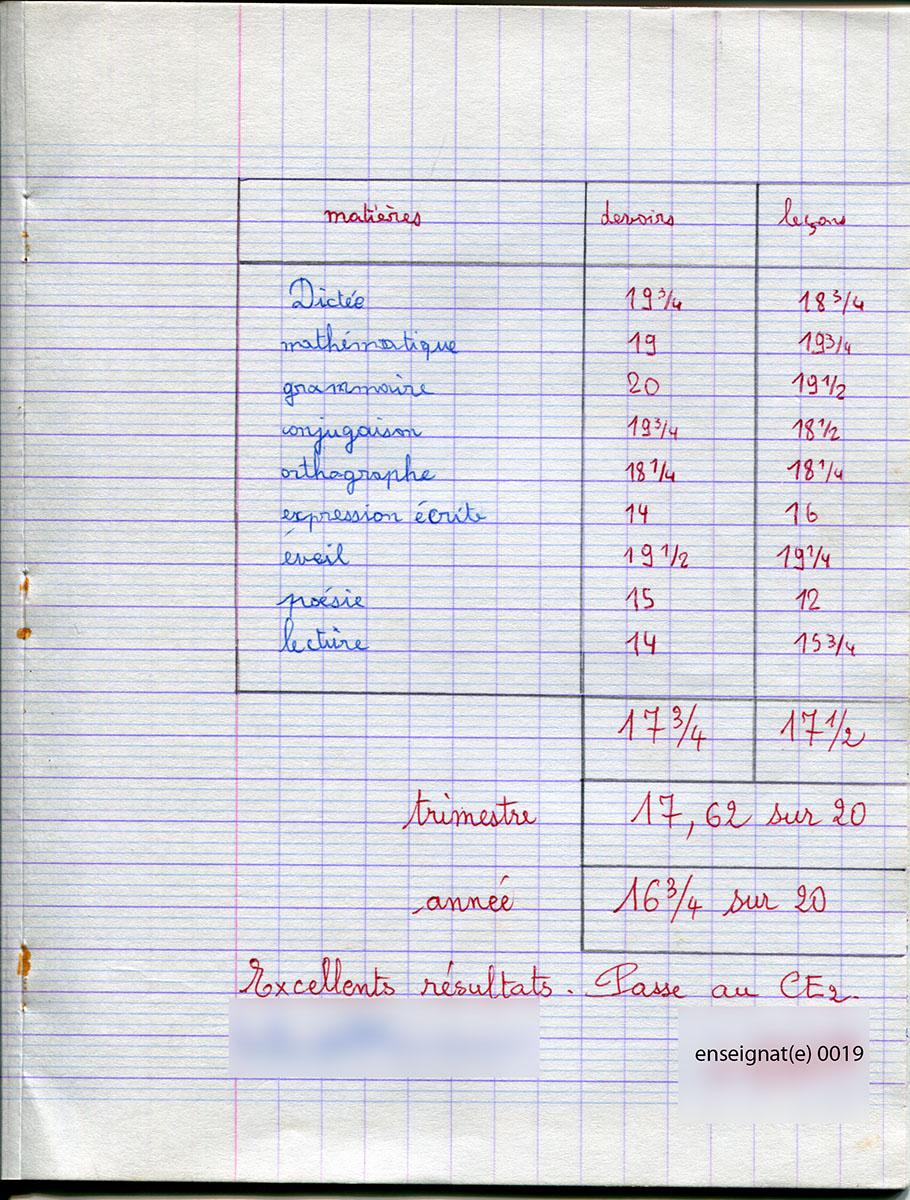 matières devoirs leçons
Dictée 19 3/4 18 3/4
mathématique 19 19 3/4
grammaire 20 19 1/2
conjugaison 19 3/4 18 1/2
orthographe 18 1/4 18 1/4
expression écrite 14 16
éveil 19 1/2 19 1/4
poésie 15 12
lecture 14 15 3/4
17 3/4 17 1/2
trimestre 17,62 sur 20
année 16 3/4 sur 20
Excellents résultats. Passe au CE2.
enseignat(e) 0019